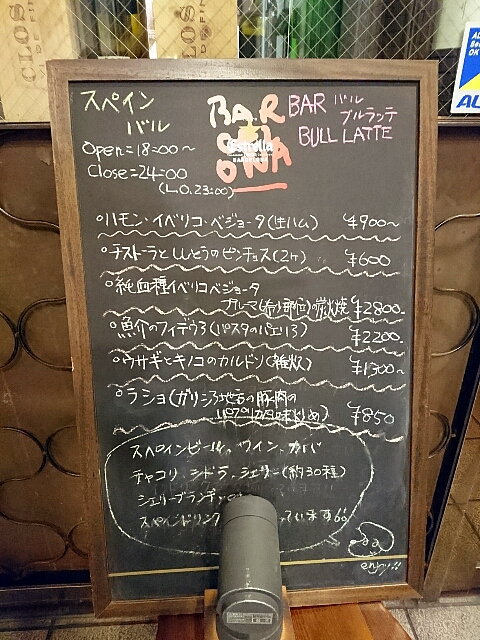 CLOS
スペイン
バル
Open=18:00~
Close=24:00
(L.O.23:00)
BAR
CEL
ONA
Estrella
BARCELONA
BAR バル
ブルランテ
BULL LATTE
ハモン・イベリコ・ベジョータ(生ハム) ¥900~
チストーラとししとうのピンチョス(2ヶ) ¥600
純血種イベリコベジョータ
プルマ(希少部位)の炭火焼 ¥2800-
魚介のフィデウろ(パスタのパエリろ) ¥2200-
ウサギとキノコのカルドソ(雑炊) ¥1300~
ラショ(ガリシア地方の豚肉の
パプリカ風味) ¥850
スペインビール、ワイン、カバ
チャコリ、シドラ、シェリー(約30種)
シェリーブランデー
スペインドリンク っています
enjoy!!